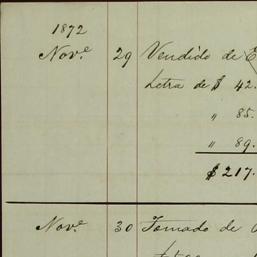 1872
Nov.e 29 Vendido de
Letra de $ 42.
" 85.
" 89.
$ 217.
Nov.e 30 Tomado de